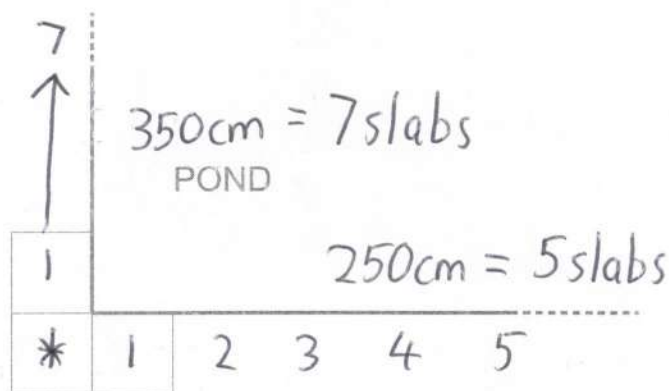 7
350cm = 7slabs
POND
1
250cm = 5slabs
* 1 2 3 4 5